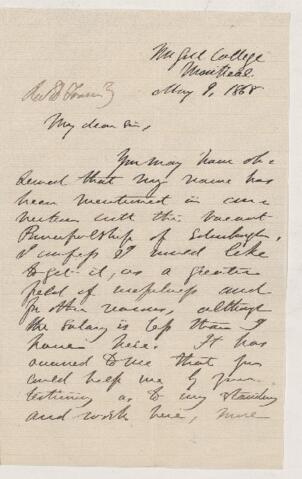 McGill College
Montreal.
May 9, 1868
My dear Sir,
You may have ob-
served that my name has
been mentioned in con-
nection with the vacant
Principalship of Edinburgh.
I confess I would like
to get it, as a greater
field of usefulness and
for other reasons, although
the salary is less than I
have here. It has
occurred to me that you
could help me by your
testimony as to my standing
and work here, more